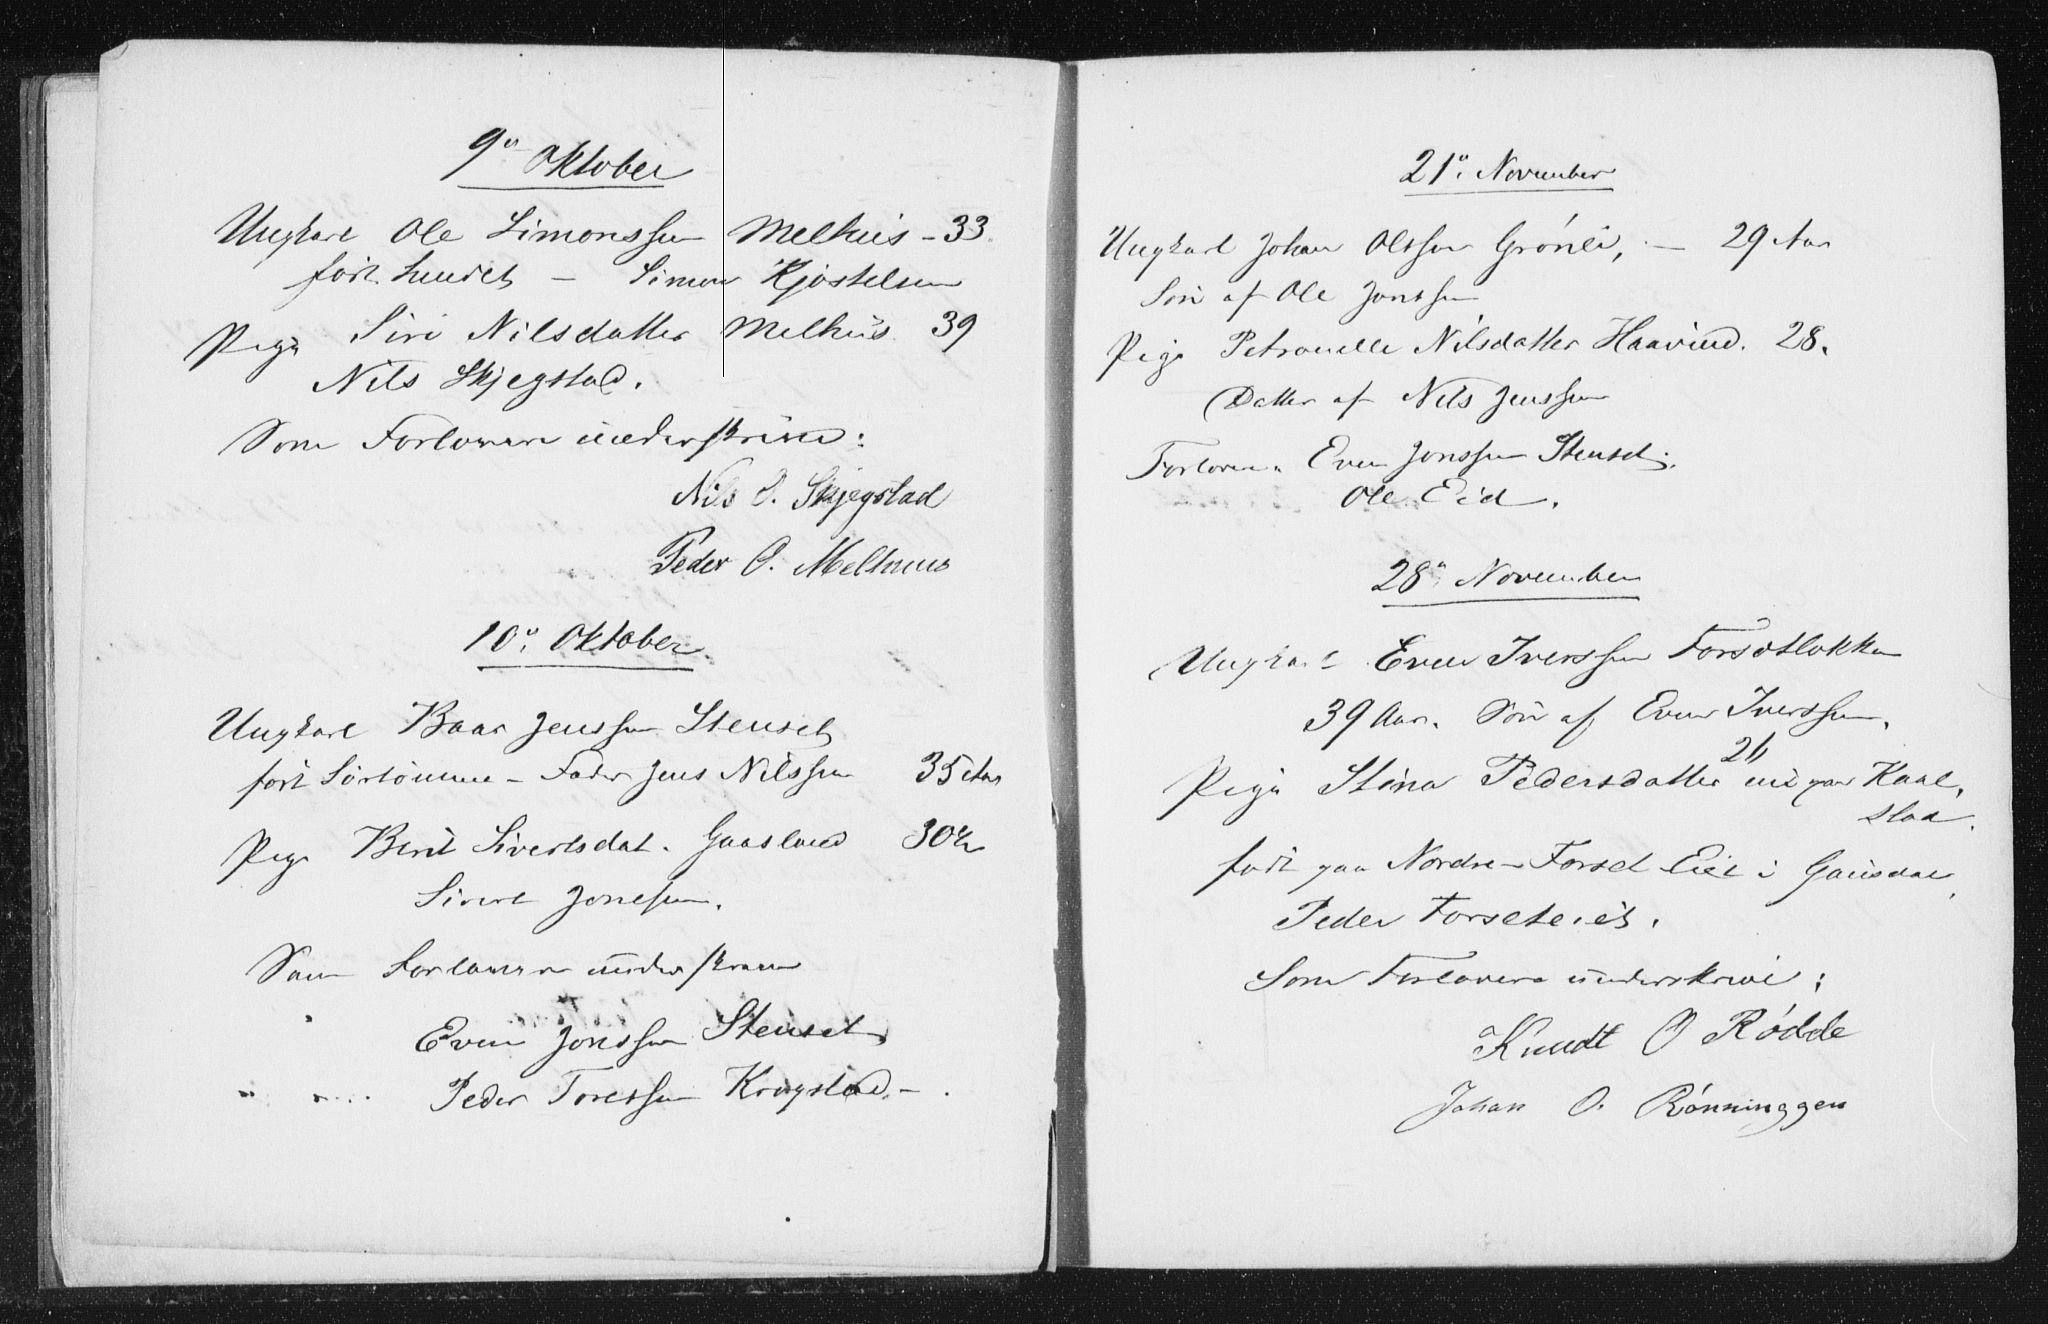 9de Oktober
Ungkarl Ole Simonssen Melhus - 33.
født hersteds - Simon Kjøstelsen
Pige Siri Nilsdatter Melhus 39
Nils Skjegstad.
Som Forlovere underskrive:
Nils O. Skjegstad
Peder O. Melhuus
10de Oktober
Ungkarl Baar Jenssen Stenset
født - Fader Jens Nilssen 35 Aar
Pige Berit Sivertsdat. Gaasland 30
Sivert Jonssen.
Som Forlovere underskrive
Even Jonssen Stenset
Peder Toressen Krogstad -
21de November
Ungkarl Johan Olssen Grönli, - 29 Aar
Søn af Ole Jonssen
Pige Petronelle Nilsdatter Haavind. 28.
Datter af Nils Jenssen
Forlovere Even Jonssen Stenset.
Ole Eid.
28de November
Ungkarl Even Iverssen Forsetløkken
39 Aar. Søn af Even Iverssen.
Pige Stina Pedersdatter 26 nu paa Kaal-
staa.
født paa Nordre Forset Eie i Gausdal
Peder Forseteiet.
Som Forlovere underskrive:
Knudt O Rødde
Johan O. Rønninggen